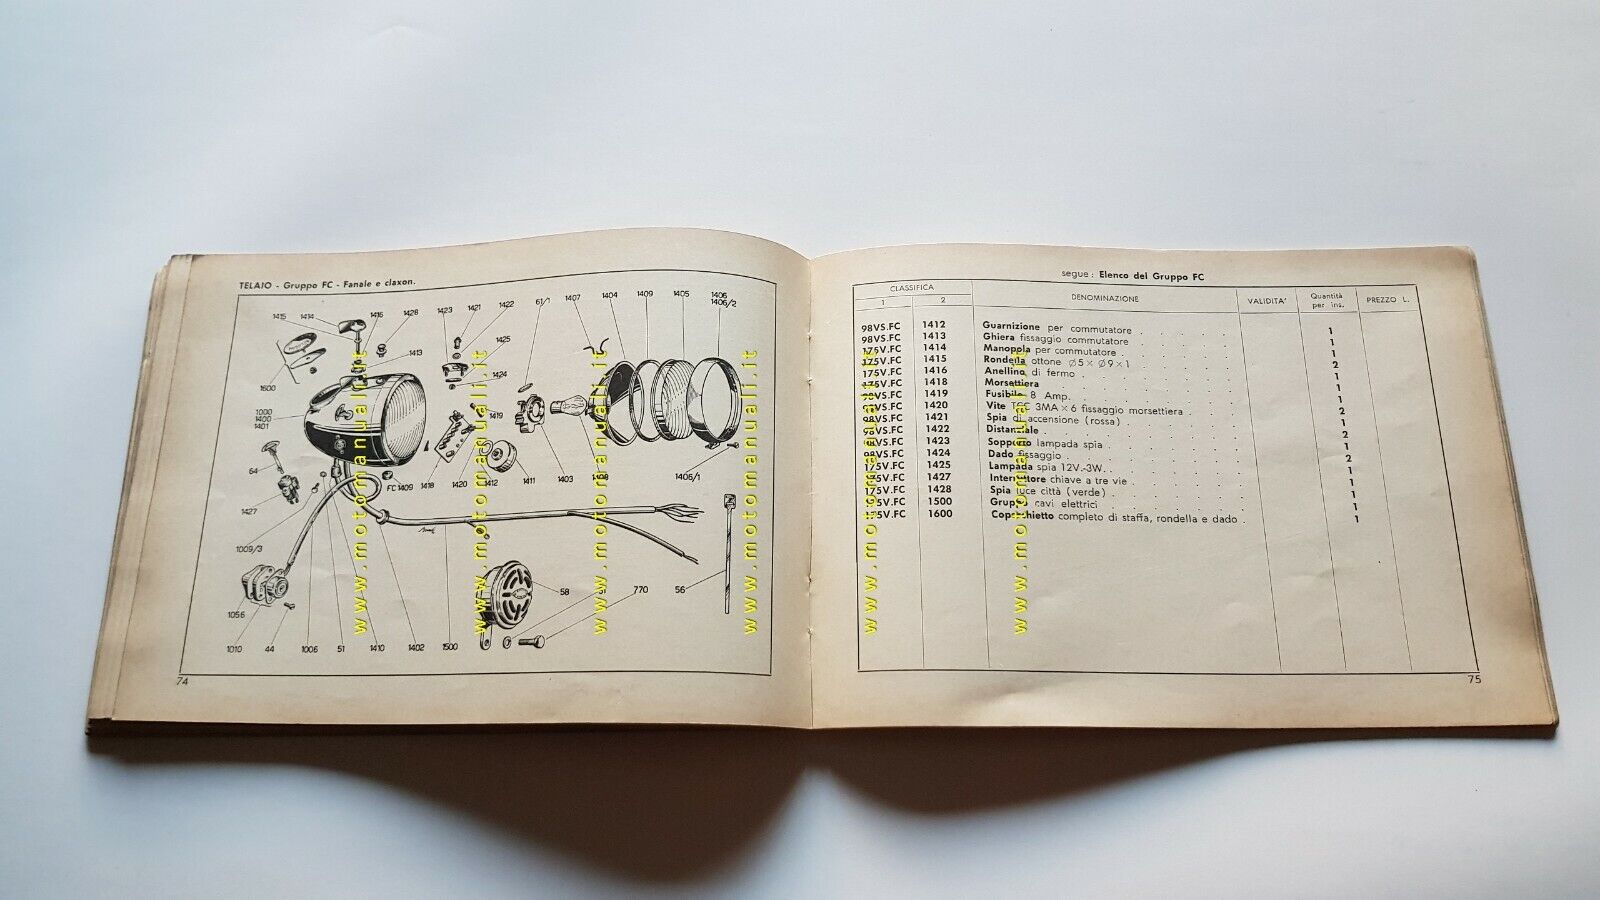 TELAIO - Gruppo FC - Fanale e claxon.
1415
1414
1416
1428
1423
1421
1422
61/1
1407
1404
1409
1405
1406
1406/2
1413
1425
1424
1600
1000
1400
1401
1419
64
1427
FC 1409
1418
1420
1412
1411
1403
1408
1406/1
1009/3
1056
58
770
56
1010
44
1006
51
1410
1402
1500
74
segue: Elenco del Gruppo FC
CLASSIFICA
1 2
DENOMINAZIONE
VALIDITA'
Quantità
per ins.
PREZZO L.
98VS.FC 1412 Guarnizione per commutatore 1
98VS.FC 1413 Ghiera fissaggio commutatore 1
175V.FC 1414 Manopola per commutatore 1
175V.FC 1415 Rondella ottone Ø5 × Ø9 × 1 2
175V.FC 1416 Anellino di fermo 1
175V.FC 1418 Morsettiera 1
98VS.FC 1419 Fusibile 8 Amp. 1
98VS.FC 1420 Vite TCC 3MA × 6 fissaggio morsettiera 2
98VS.FC 1421 Spia di accensione (rossa) 1
98VS.FC 1422 Distanziale 2
98VS.FC 1423 Supporto lampada spia 1
98VS.FC 1424 Dado fissaggio 2
175V.FC 1425 Lampada spia 12V.-3W. 1
175V.FC 1427 Interruttore chiave a tre vie 1
175V.FC 1428 Spia luce città (verde) 1
175V.FC 1500 Gruppo cavi elettrici 1
175V.FC 1600 Coperchietto completo di staffa, rondella e dado 1
75
www.motomanuali.it
www.motomanuali.it
www.motomanuali.it
www.motomanuali.it
www.motomanuali.it
www.motomanuali.it